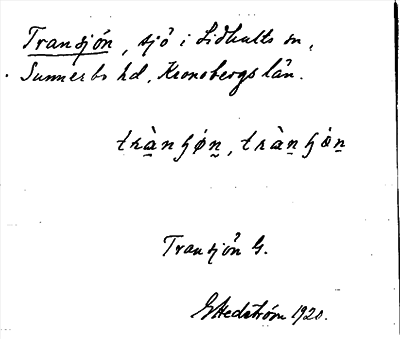 Transjön, sjö i Lidhults sn,
Sunnerbo hd, Kronobergs län.
trànʃøn, trànʃön
Transjön G.
G Hedström 1920.